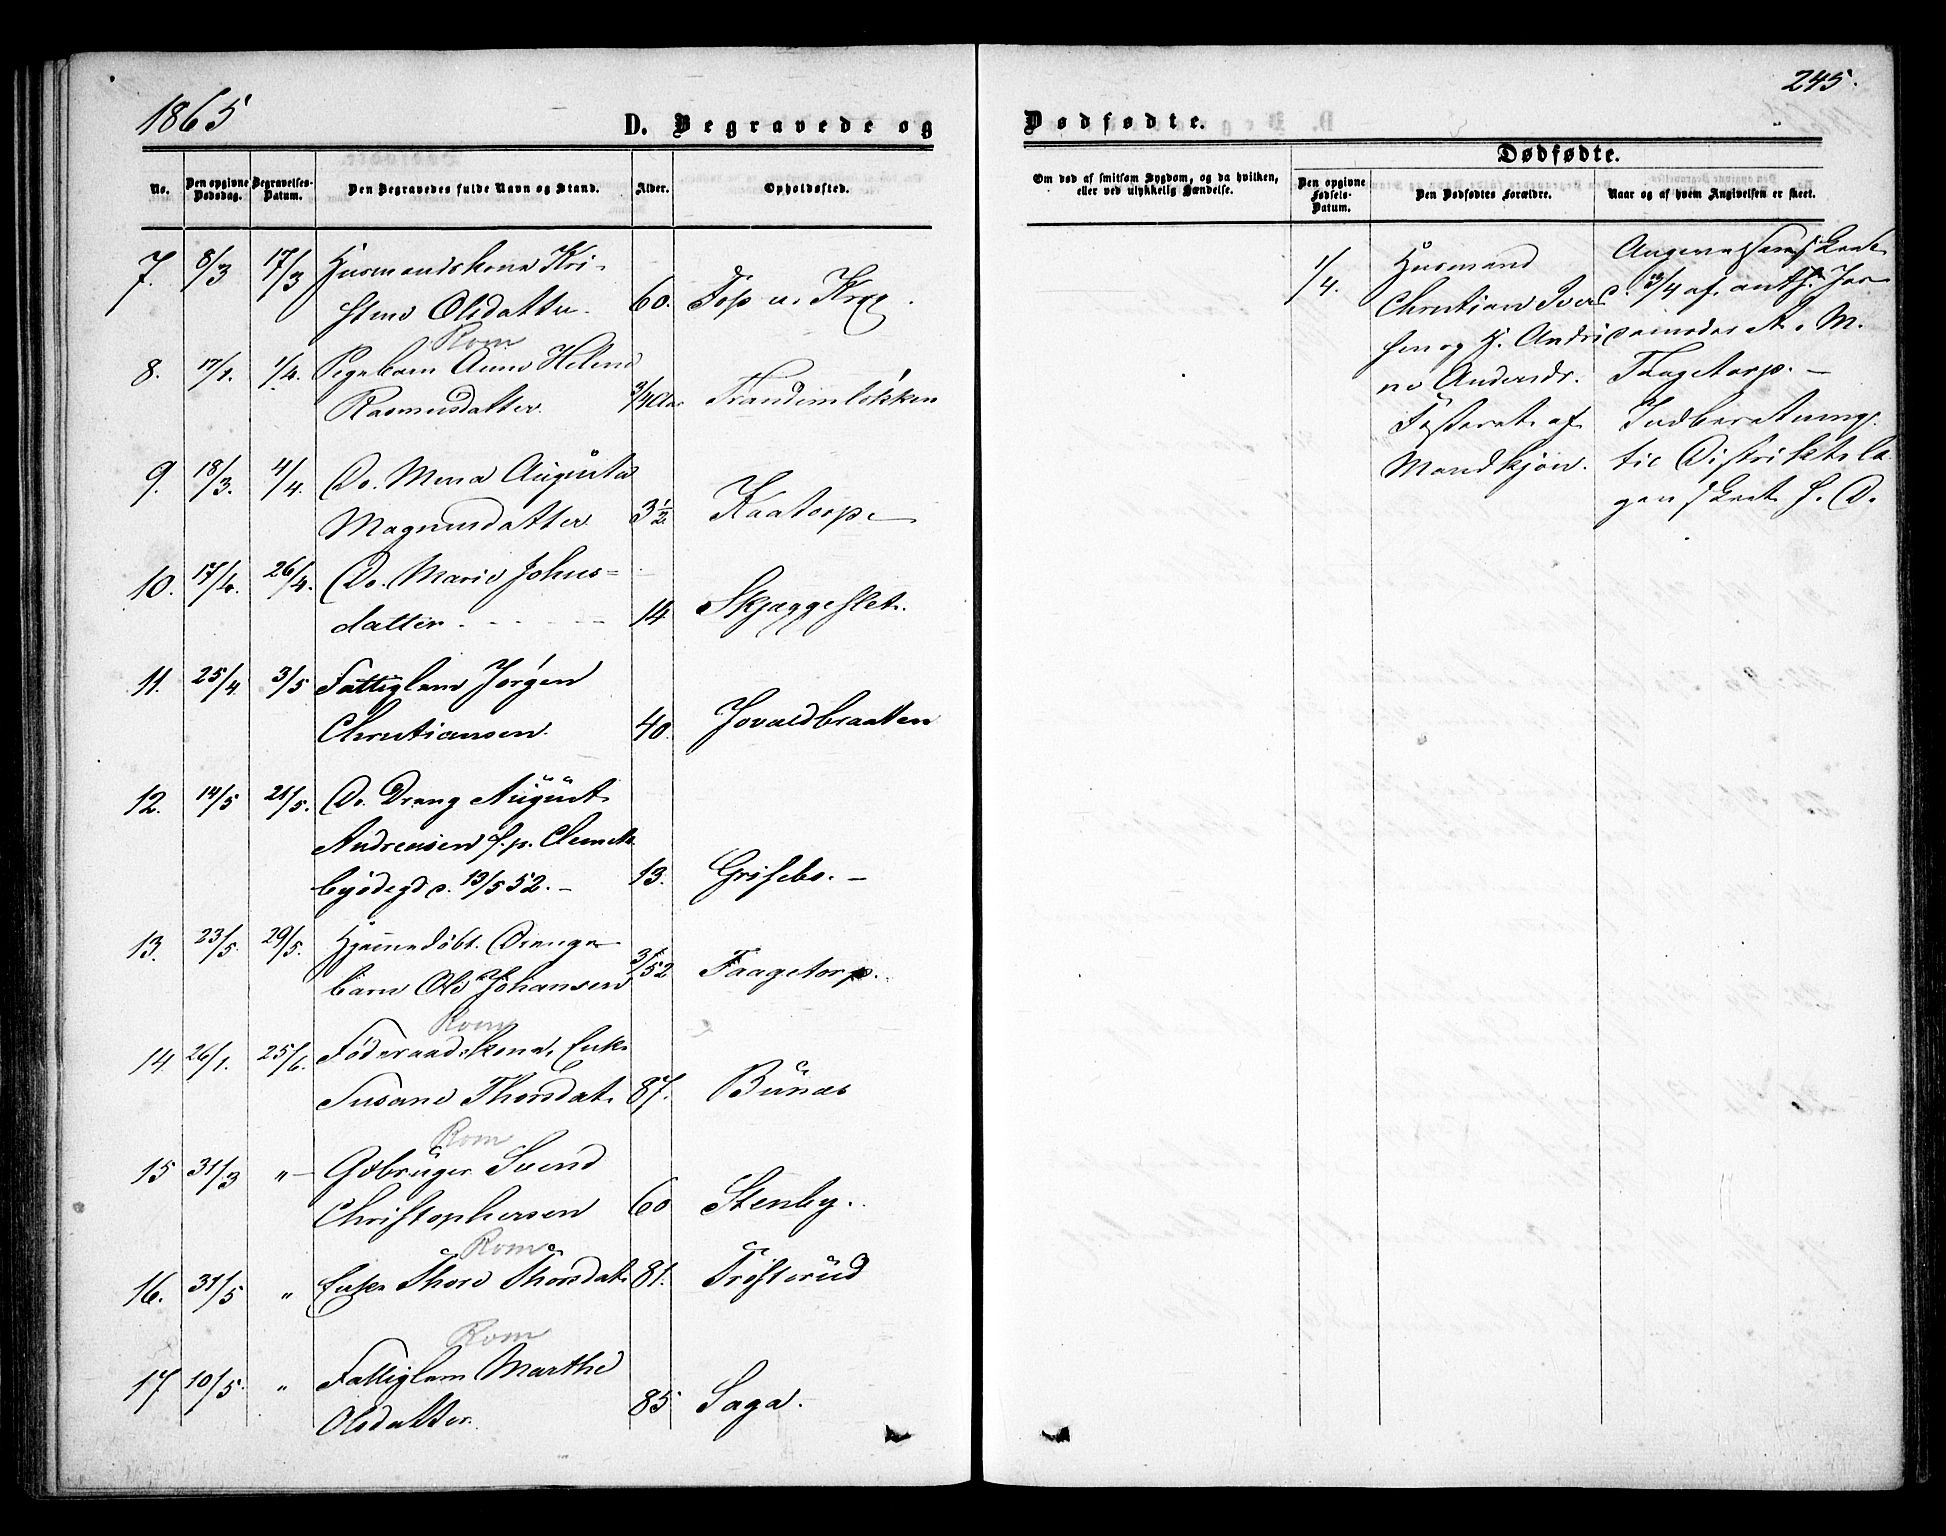 1865
D. Begravede og
No.
Den opgivne Dødsdag.
Begravelses-Datum.
Den Begravedes fulde Navn og Stand.
Alder.
Opholdssted.
7. 8/3 17/3 Husmandskone Kri-
stine Olsdatter. 60.
Rom
8. 17/1. 1/4. Pigebarn Anne Helene
Rasmusdatter. 3/4 Aar Trandemløkken
9. 18/3. 4/4. Do. Mena Augusta
Magnusdatter 3 1/2 Kaatorp
10. 17/4. 26/4. Do. Marie Johns-
datter. 14 Skjæggeslet.
11. 25/4. 3/5 Fattiglem Jørgen
Christiansen. 40. Jovaldbraatten
12. 14/5 21/5. Do. Dreng August
Andreasen f. p. Clemets
byødegd d. 13/5 52. - 13. Grisebo. -
13. 23/5. 29/5. Hjemmedøbt Drenge
barn Ole Johansen 3/52 Faagetorp.
Rom
14 26/1. 25/6. Föderaadskone, Enke
Susane Thorsdat. 87. Bunæs
Rom
15 31/3 " Gdbruger Svend
Christophersen 60 Stenby.
Rom
16. 31/5 " Enke Thore Thorsdat. 81. Trøsterud
Rom
17 10/5. " Fattiglem Marthe
Olsdatter. 85 Saga.
245.
Dødfødte.
Om død af smitsom Sygdom, og da hvilken, eller ved ulykkelig Hændelse.
Dødfødte.
Den opgivne Fødsels-Datum.
Den Dødfødtes Forældre.
Naar og af hvem Angivelsen er skeet.
1/4. Husmand
Christian Iver
sen og H. Andri
ne Andersdr.
Fosteret af
Mandkjøn.
Angivelsen skeet
d. 13/4 af
A. M.
Faagetorp. -
Indberetning
til Distriktslæ
gen skeet S. D.